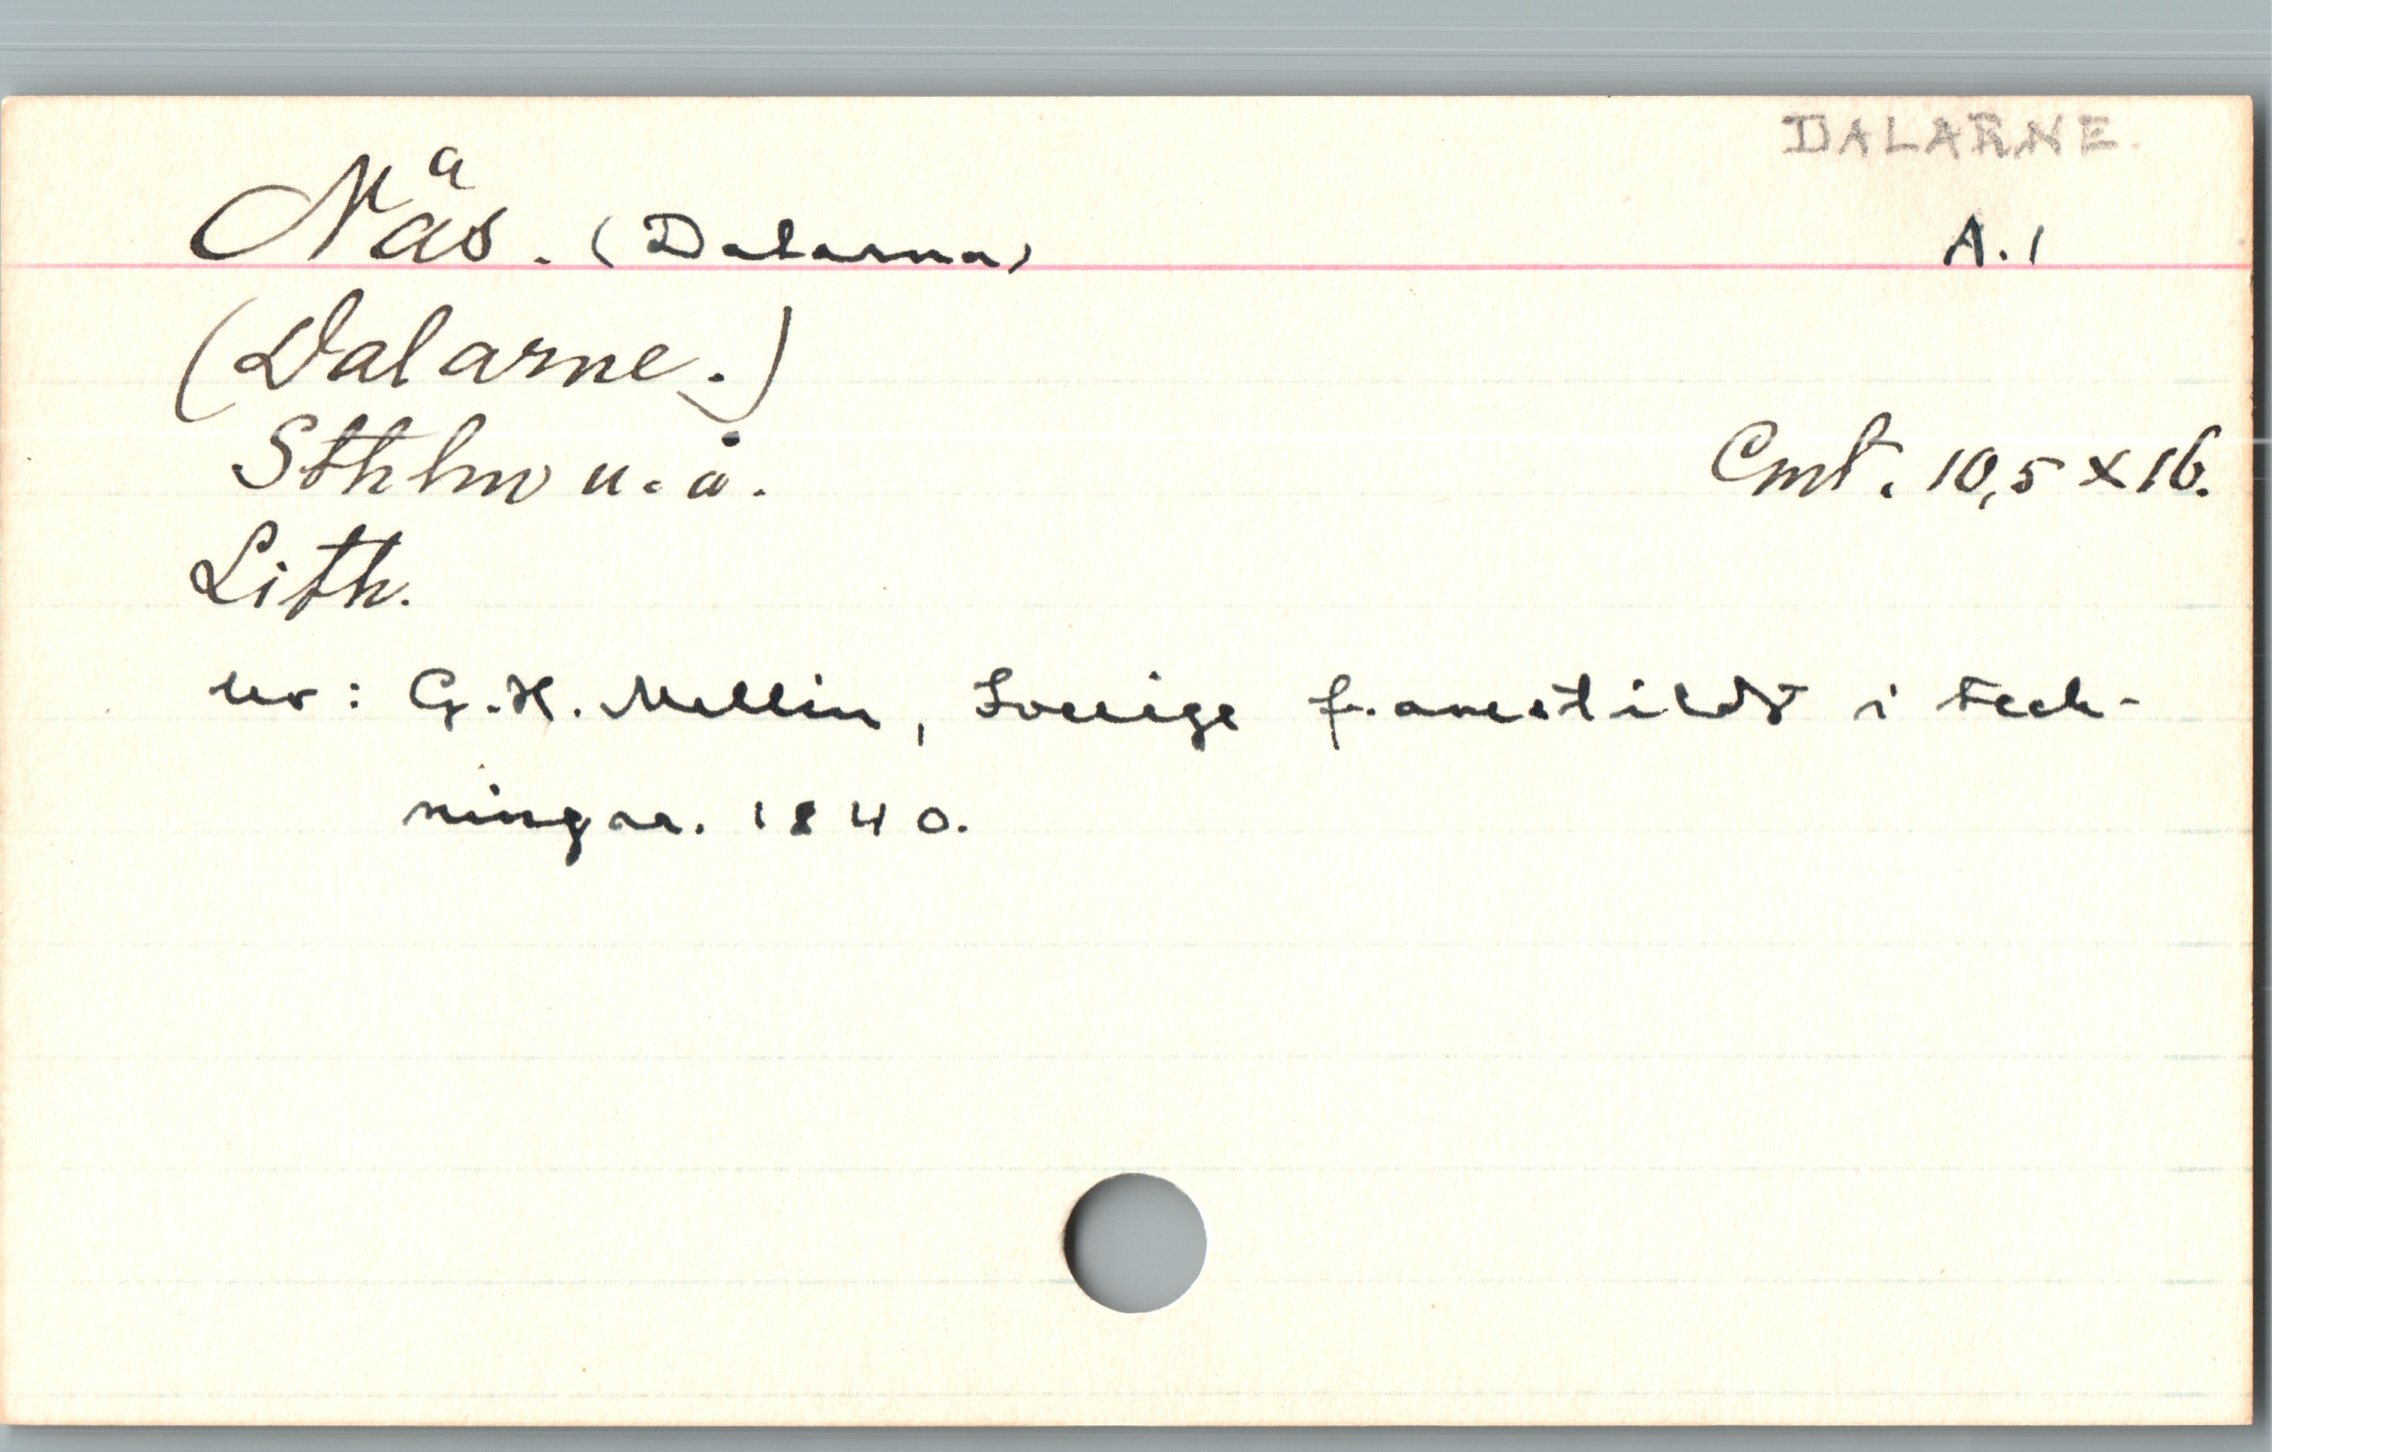 DALARNE.
Näs. (Dalarna) A.1
(Dalarne.)
Sthlm u. å. Cmt. 10,5 x 16.
Lith.
ur: G.H. Mellin, Sverige framstäldt i teck-
ningar. 1840.